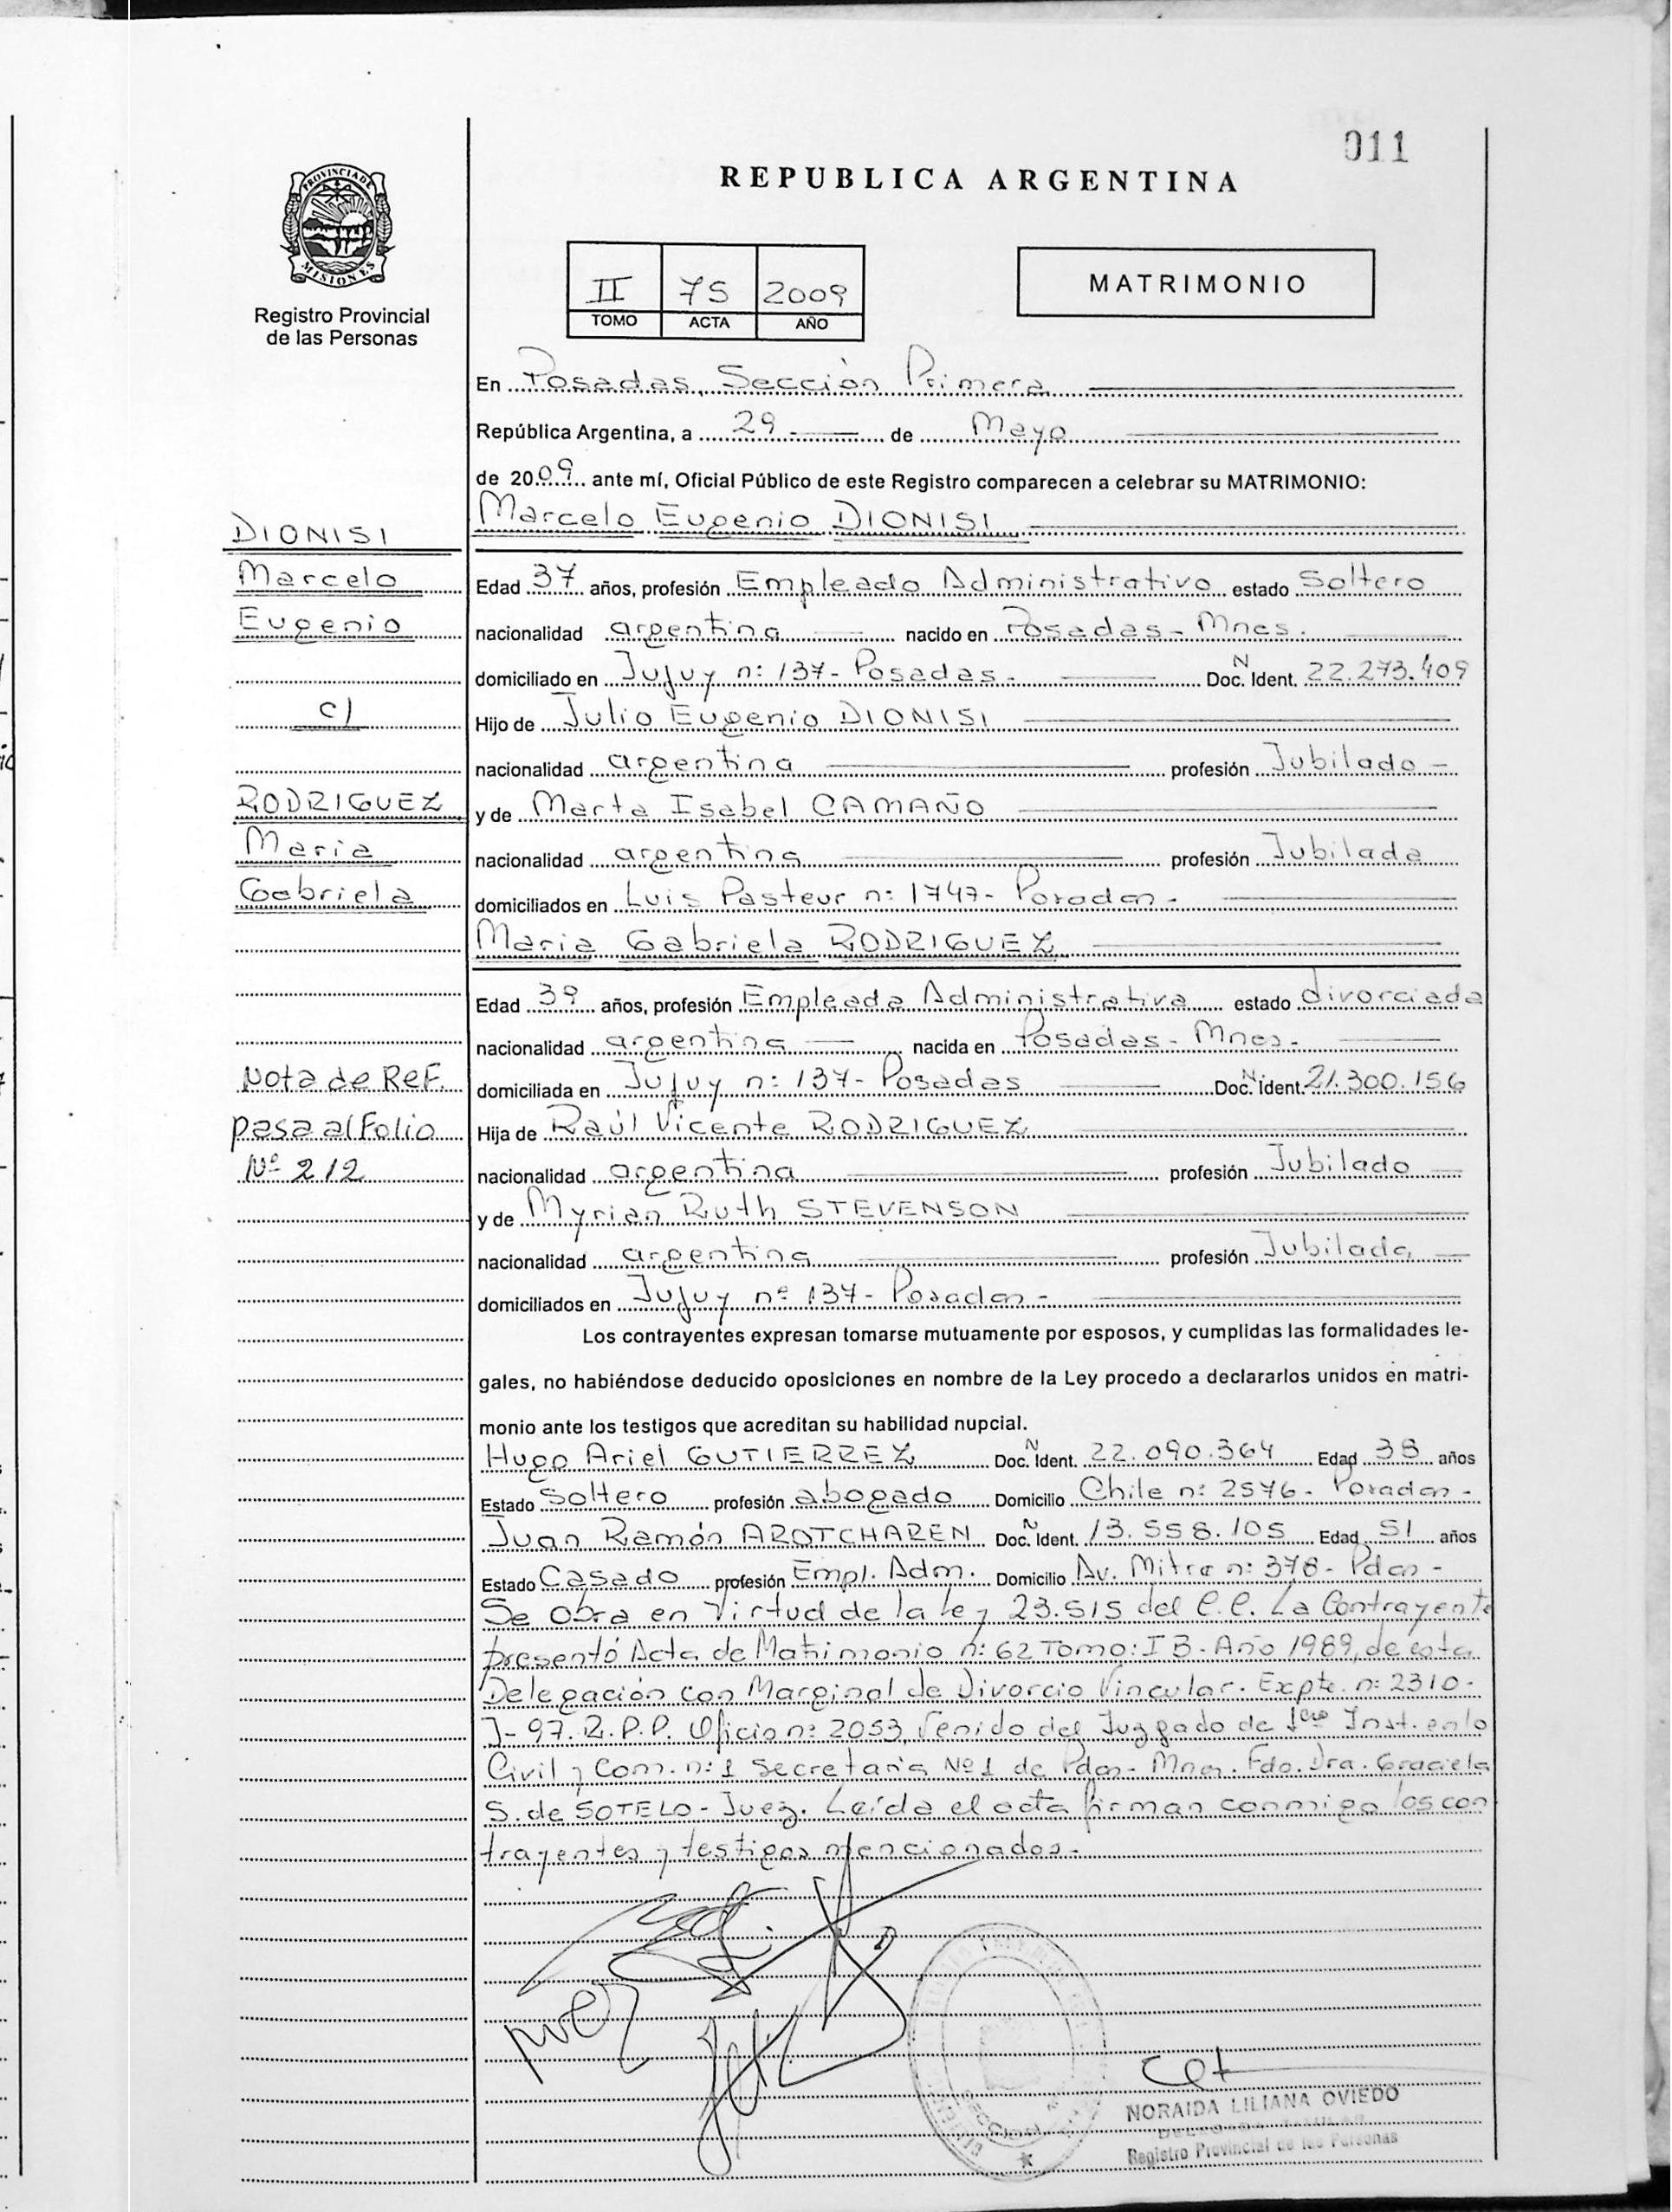 011
REPUBLICA ARGENTINA
PROVINCIA DE
MISIONES
Registro Provincial
de las Personas
II 75 2009
TOMO ACTA AÑO
MATRIMONIO
En Posadas, Sección Primera
República Argentina, a 29 de Mayo
de 2009 ante mí, Oficial Público de este Registro comparecen a celebrar su MATRIMONIO:
Marcelo Eugenio DIONISI
DIONISI
Marcelo
Eugenio
c/
RODRIGUEZ
Maria
Gabriela
Nota de Ref.
pasa al Folio
Nº 212
Edad 37 años, profesión Empleado Administrativo estado Soltero
nacionalidad argentina nacido en Posadas - Mnes.
domiciliado en Jujuy n: 137 - Posadas - Doc. N Ident. 22.273.409
Hijo de Julio Eugenio DIONISI
nacionalidad argentina profesión Jubilado -
y de Marta Isabel CAMAÑO
nacionalidad argentina profesión Jubilada
domiciliados en Luis Pasteur n: 1747 - Posadas -
Maria Gabriela RODRIGUEZ
Edad 39 años, profesión Empleada Administrativa estado divorciada
nacionalidad argentina nacida en Posadas - Mnes -
domiciliada en Jujuy n: 137 - Posadas Doc. N Ident. 21.300.156
Hija de Raúl Vicente RODRIGUEZ
nacionalidad argentina profesión Jubilado
y de Myrian Ruth STEVENSON
nacionalidad argentina profesión Jubilada
domiciliados en Jujuy nº 137 - Posadas -
Los contrayentes expresan tomarse mutuamente por esposos, y cumplidas las formalidades le-
gales, no habiéndose deducido oposiciones en nombre de la Ley procedo a declararlos unidos en matri-
monio ante los testigos que acreditan su habilidad nupcial.
Hugo Ariel GUTIERREZ Doc. N Ident. 22.090.364 Edad 38 años
Estado Soltero profesión abogado Domicilio Chile n: 2576 - Posadas -
Juan Ramón AROTCHAREN Doc. N Ident. 13.558.105 Edad 51 años
Estado Casado profesión Empl. Adm. Domicilio Av. Mitre n: 378 - Pdas -
Se obra en Virtud de la ley 23.515 del C.C. La Contrayente
presentó Acta de Matrimonio n: 62 Tomo: I B - Año 1989, de esta
Delegación con Marginal de Divorcio Vincular. Expte. n: 2310 -
J - 97. R.P.P. Oficio n: 2053, Venido del Juzgado de 1era Inst. en lo
Civil y Com. n: 1 Secretaría Nº 1 de Pdas - Mnes. Fdo. Dra. Graciela
S. de SOTELO - Juez. Leída el acta firman conmigo los con
trayentes y testigos mencionados -
NORAIDA LILIANA OVIEDO
Registro Provincial de las Personas